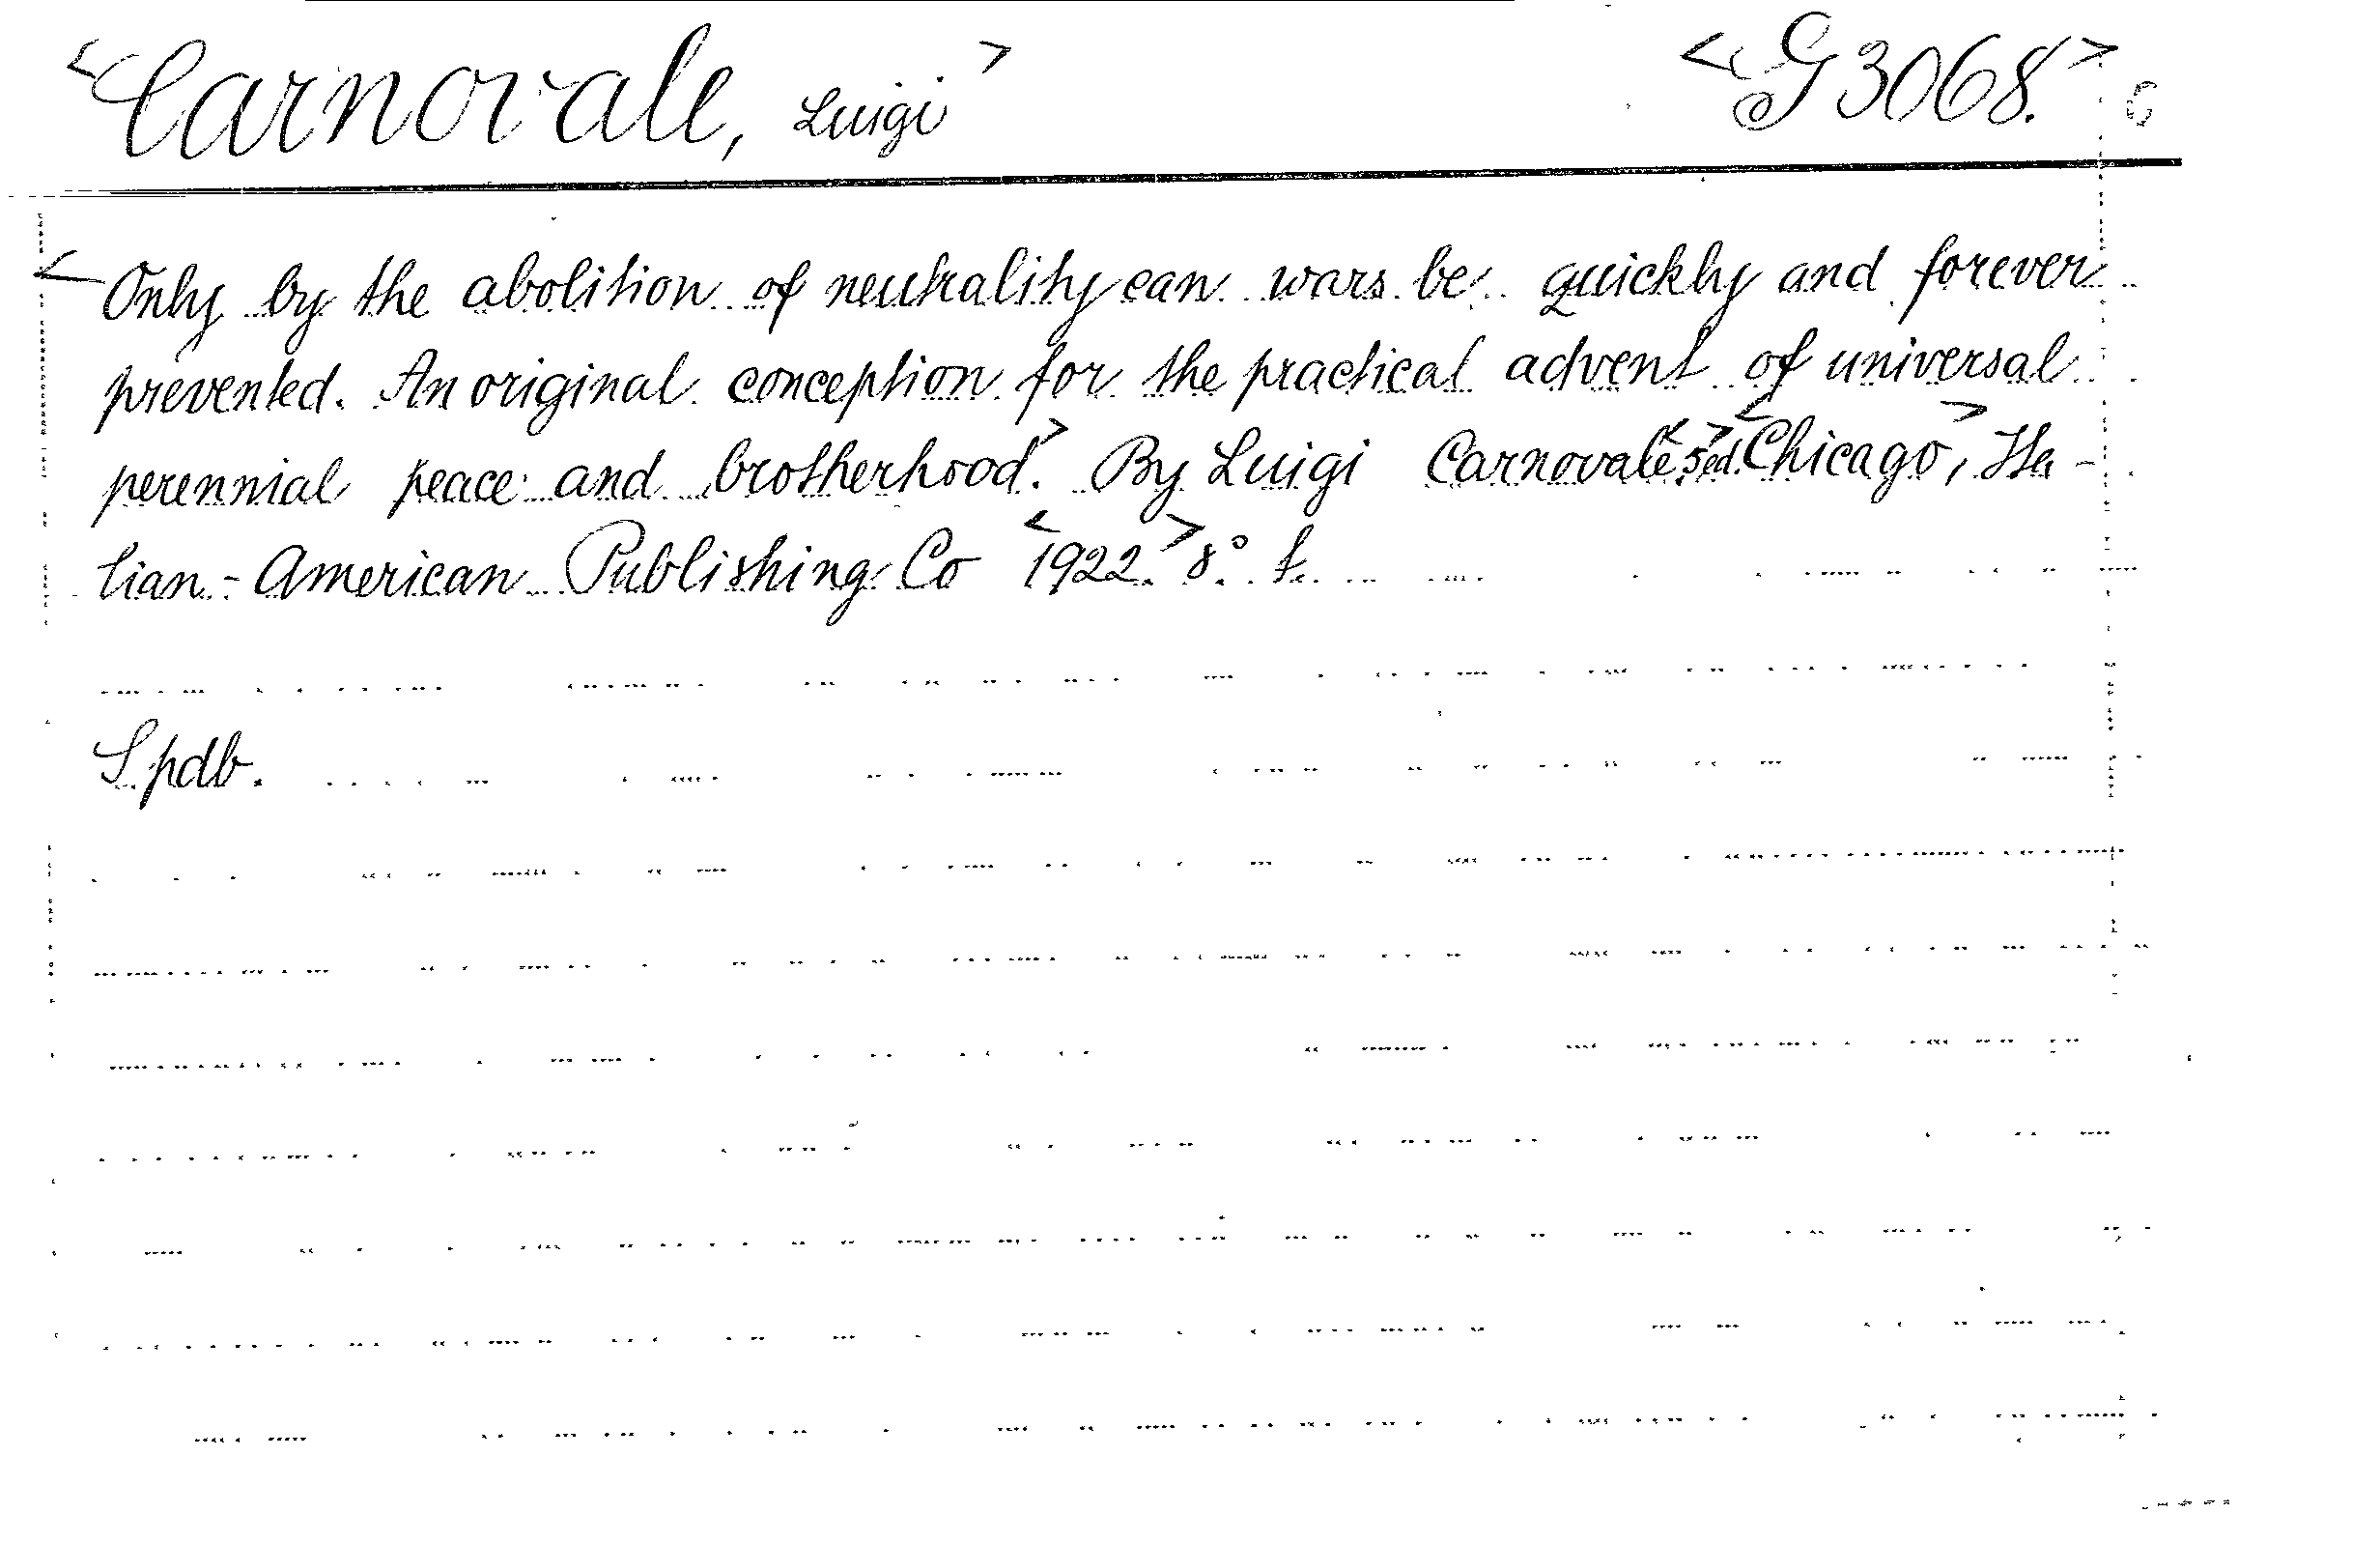 <Carnovale, Luigi> <G 3068.> G
<Only by the abolition of neutrality can wars be quickly and forever
prevented. An original conception for the practical advent of universal
perennial peace and brotherhood.> By Luigi Carnovale. <5 ed.> <Chicago>, Ita-
lian-American Publishing Co <1922.> 8°. f.
S. pdb.